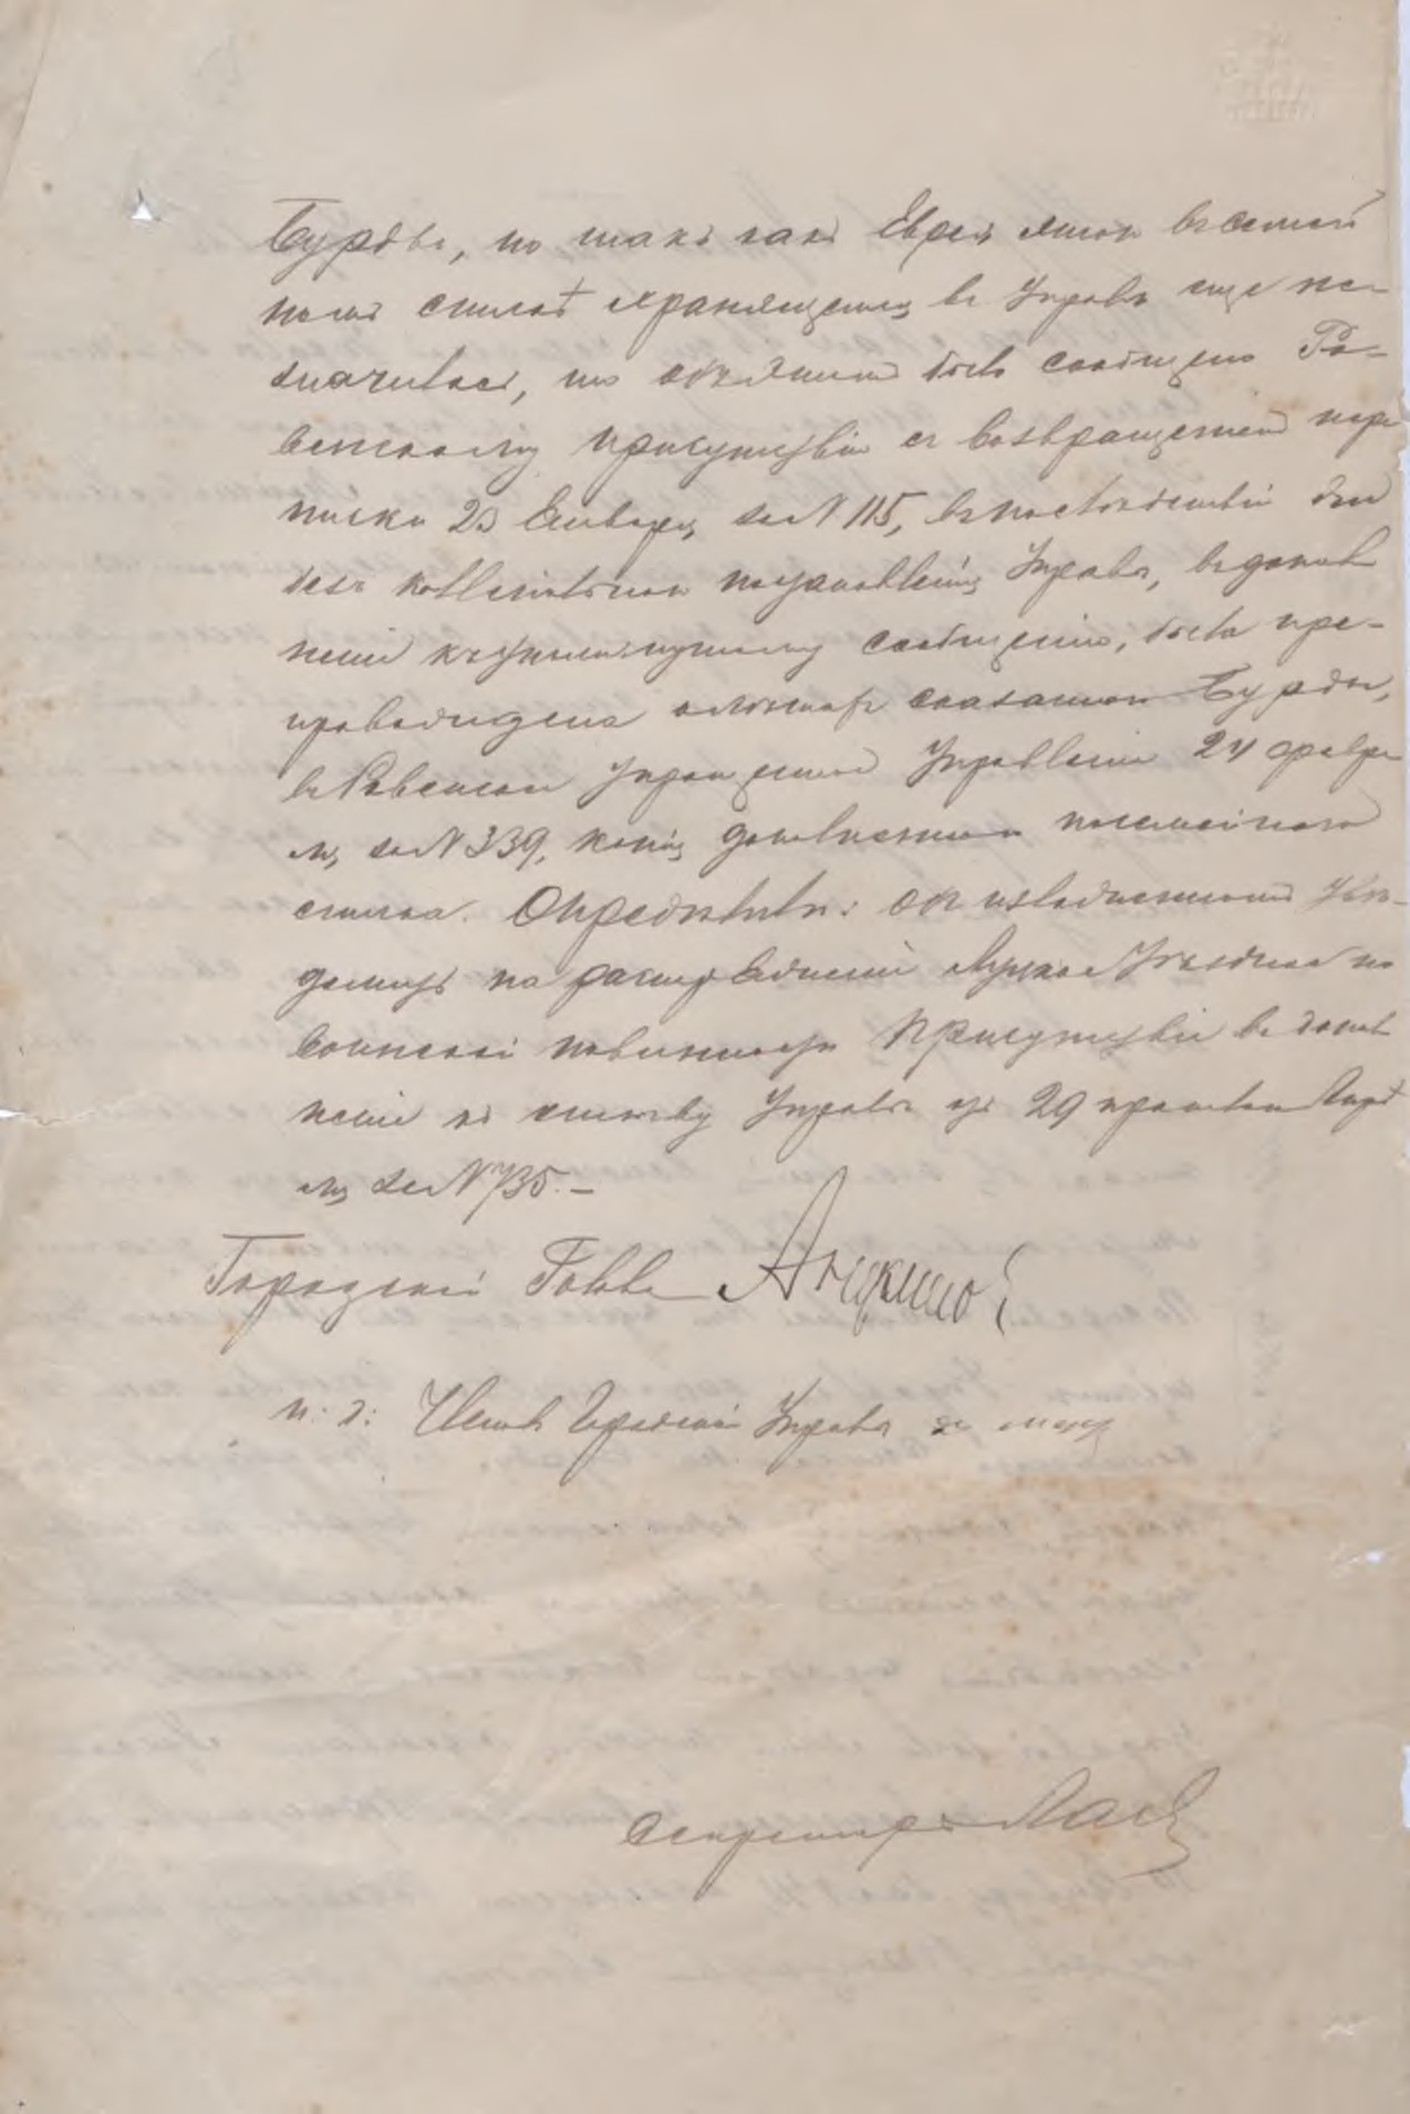 Бурдѣ, но такъ какъ Еврей этотъ въ семей
номъ спискѣ хранящемся въ Управѣ еще не
значился, то объ этомъ было сообщено Ро-
венскому присутствію съ возвращеніемъ пере
писки 20 Января за № 115, въ послѣдствіи
постановленія Управы, въ допол
неніи къ упомянутому сообщенію, была пре-
провождена о сказаномъ Бурдѣ,
въ Ровенское Управленіе 24 февра
ля за № 339, копія дополнительнаго посемейнаго
списка. Опредѣлили: объ изложенномъ увѣ-
домить на распоряженіе Луцкое Уѣздное по
воинской повинности Присутствіе въ допол
неніе къ отзыву Управы отъ 29 Апрѣ
ля за № 735.–
Городской Голова
и: д: Членъ Городской Управы
Секретарь